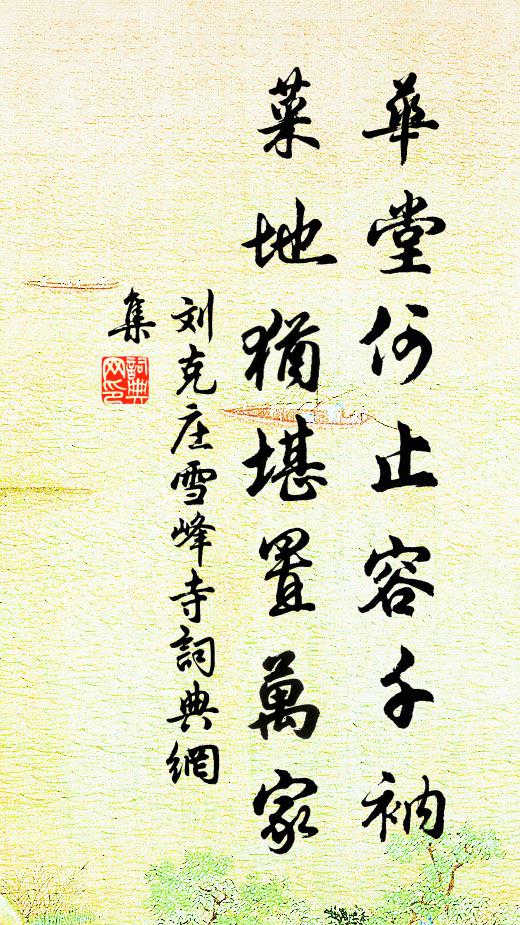 華堂何止容千衲
菜地猶堪置萬家
刘克庄雪峰寺詞典網
集
詞典
网印